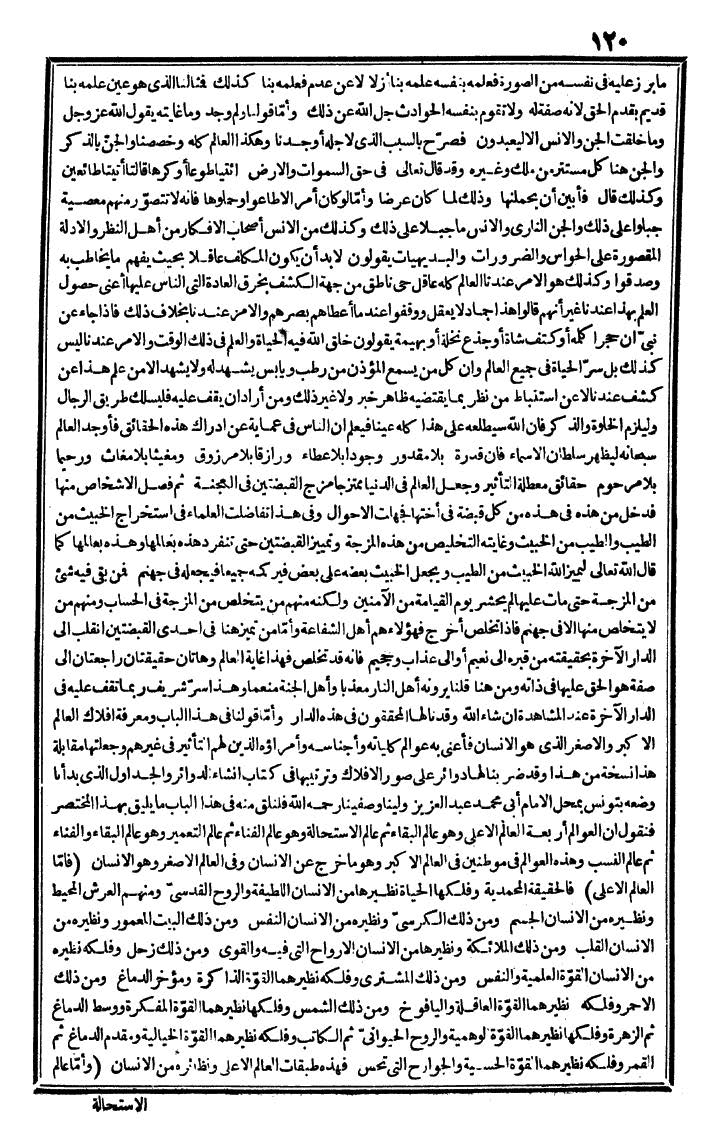 ١٢٠
ما برز عليه فى نفسه من الصورة فعلمه بنفسه علمه بنا أزلا لا عن عدم فعلمه بنا كذلك فثالنا الذى هو عين علمه بنا
قديم بقدم الحق لانه صفة له ولا تقوم بنفسه الحوادث جل الله عن ذلك وأما قولنا ولم وجد وما غايته يقول الله عز وجل
وما خلقت الجن والانس الا ليعبدون فصرح بالسبب الذى لاجله أوجدنا وهكذا العالم كله وخصصنا والجن بالذكر
والجن هنا كل مستتر من ملك وغيره وقد قال تعالى فى حق السموات والارض ائتيا طوعا أو كرها قالتا أتينا طائعين
وكذلك قال فأبين أن يحملنها وذلك لما كان عرضا وأما لو كان أمر الاطاعوا وحملوها فانه لا تتصور منهم معصية
جبلوا على ذلك والجن النارى والانس ما جبلا على ذلك وكذلك من الانس أصحاب الافكار من أهل النظر والادلة
المقصورة على الحواس والضرورات والبديهيات يقولون لابد أن يكون المكلف عاقلا بحيث يفهم ما يخاطب به
وصدقوا وكذلك هو الامر عندنا العالم كله عاقل حى ناطق من جهة الكشف بخرق العادة التى الناس عليها أعنى حصول
العلم بهذا عندنا غير أنهم قالوا هذا جماد لا يعقل ووقفوا عند ما أعطاهم بصرهم والامر عندنا بخلاف ذلك فاذا جاء عن
نبى ان حجرا كله أو كتف شاة أو جذع نخلة أو بهيمة يقولون خلق الله فيه الحياة والعلم فى ذلك الوقت والامر عندنا ليس
كذلك بل سر الحياة فى جميع العالم وان كل من يسمع المؤذن من رطب ويابس يشهد له ولا يشهد الا من علم هذا عن
كشف عندنا لا عن استنباط من نظر بما يقتضيه ظاهر خبر ولا غير ذلك ومن أراد أن يقف عليه فليسلك طريق الرجال
وليلزم الخلوة والذكر فان الله سيطلعه على هذا كله عينا فيعلم ان الناس فى عماية عن ادراك هذه الحقائق فأوجد العالم
سبحانه ليظهر سلطان الاسماء فان قدرة بلا مقدور وجودا بلا عطاء ورازقا بلا مرزوق ومغيثا بلا مغاث ورحيما
بلا مرحوم حقائق معطلة التأثير وجعل العالم فى الدنيا ممتزجا مزج القبضتين فى العجنة ثم فصل الاشخاص منها
فدخل من هذه فى هذه من كل قبضة فى أختها فجهلت الاحوال وفى هذا تفاضلت العلماء فى استخراج الخبيث من
الطيب والطيب من الخبيث وغايته التخليص من هذه المزجة وتمييز القبضتين حتى تنفرد هذه بعالمها وهذه بعالمها كما
قال الله تعالى ليميز الله الخبيث من الطيب ويجعل الخبيث بعضه على بعض فيركمه جميعا فيجعله فى جهنم فمن بقى فيه شئ
من المزجة حتى مات عليها لم يحشر يوم القيامة من الآمنين ولكنه منهم من يتخلص من المزجة فى الحساب ومنهم من
لا يتخلص منها الا فى جهنم فاذا تخلص أخرج فهؤلاء هم أهل الشفاعة وأما من تميز هنا فى احدى القبضتين انقلب الى
الدار الآخرة بحقيقته من قبره الى نعيم أو الى عذاب وجحيم فانه قد تخلص فهذا غاية العالم وهاتان حقيقتان راجعتان الى
صفة هو الحق عليها فى ذاته ومن هنا قلنا يرونه أهل النار معذبا وأهل الجنة منعما وهذا سر شريف ربما تقف عليه فى
الدار الآخرة عند المشاهدة ان شاء الله وقد نالها المحققون فى هذه الدار وأما قولنا فى هذا الباب ومعرفة افلاك العالم
الاكبر والاصغر الذى هو الانسان فأعنى به عوالم كلياته وأجناسه وأمراؤه الذين لهم التأثير فى غيرهم وجعلتها مقابلة
هذا نسخة من هذا وقد ضربنا لها دوائر على صور الافلاك وترتيبها فى كتاب انشاء الدوائر والجداول الذى بدأنا
وضعه بتونس بمحل الامام أبى محمد عبد العزيز ولينا وصفينا رحمه الله فلنلق منه فى هذا الباب ما يليق بهذا المختصر
فنقول ان العوالم أربعة العالم الاعلى وهو عالم البقاء ثم عالم الاستحالة وهو عالم الفناء ثم عالم التعمير وهو عالم البقاء والفناء
ثم عالم النسب وهذه العوالم فى موطنين فى العالم الاكبر وهو ما خرج عن الانسان وفى العالم الاصغر وهو الانسان (فأما
العالم الاعلى) فالحقيقة المحمدية وفلكها الحياة نظيرها من الانسان اللطيفة والروح القدسى ومنهم العرش المحيط
ونظيره من الانسان الجسم ومن ذلك الكرسى ونظيره من الانسان النفس ومن ذلك البيت المعمور ونظيره من
الانسان القلب ومن ذلك الملائكة ونظيرها من الانسان الارواح التى فيه والقوى ومن ذلك زحل وفلكه نظيره
من الانسان القوة العلمية والنفس ومن ذلك المشترى وفلكه نظيرهما القوة الذاكرة ومؤخر الدماغ ومن ذلك
الاحمر وفلكه نظيرهما القوة العاقلة واليافوخ ومن ذلك الشمس وفلكها نظيرهما القوة المفكرة ووسط الدماغ
ثم الزهرة وفلكها نظيرهما القوة الوهمية والروح الحيوانى ثم الكاتب وفلكه نظيرهما القوة الخيالية ومقدم الدماغ ثم
القمر وفلكه نظيرهما القوة الحسية والجوارح التى تحس فهذه طبقات العالم الاعلى ونظائره من الانسان (وأما عالم
الاستحالة